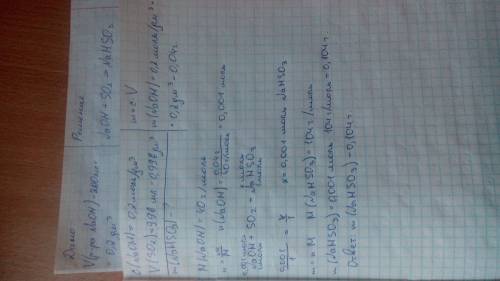 Дано: Решение
V(р-ра NaOH)=200мл= NaOH + SO₂ = NaHSO₃
= 0,2 дм³
c(NaOH)= 0,2 моль/дм³ m = c·V
V(SO₂)= 996 мл = 0,998 дм³ m(NaOH)= 0,2 моль/дм³·
m(NaHSO₃) - ? · 0,2 дм³ = 0,04 г
M(NaOH)= 40 г/моль
n = m/M n(NaOH) = 0,04 г / 40 г/моль = 0,001 моль
0,001 моль x моль
NaOH + SO₂ = NaHSO₃
1 моль 1 моль
0,001/1 = x/1 x = 0,001 моль NaHSO₃
m = n·M M(NaHSO₃) = 104 г/моль
m(NaHSO₃) = 0,001 моль · 104 г/моль = 0,104 г
Ответ: m(NaHSO₃) = 0,104 г.